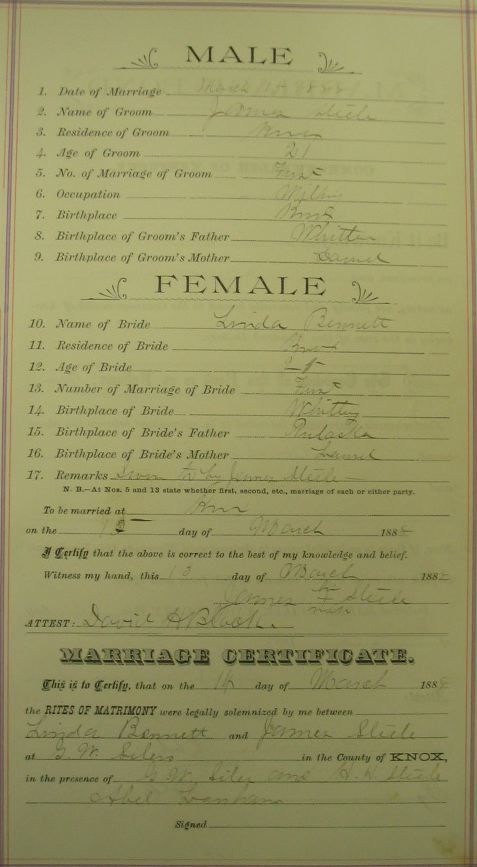 MALE
1. Date of Marriage March
2. Name of Groom James Steele
3. Residence of Groom Knox
4. Age of Groom 21
5. No. of Marriage of Groom First
6. Occupation
7. Birthplace Knox
8. Birthplace of Groom's Father Whitley
9. Birthplace of Groom's Mother Laurel
FEMALE
10. Name of Bride Linda Bennett
11. Residence of Bride Knox
12. Age of Bride
13. Number of Marriage of Bride First
14. Birthplace of Bride Whitley
15. Birthplace of Bride's Father Pulaski
16. Birthplace of Bride's Mother Laurel
17. Remarks Sworn to by James Steele
N. B.—At Nos. 5 and 13 state whether first, second, etc., marriage of each or either party.
To be married at
on the 15 day of March 188
I Certify that the above is correct to the best of my knowledge and belief.
Witness my hand, this 13 day of March 188
James Steele
his X mark
ATTEST: David H Black.
MARRIAGE CERTIFICATE.
This is to Certify, that on the day of March 188
the RITES OF MATRIMONY were legally solemnized by me between
Linda Bennett and James Steele
at G. W. Silers in the County of KNOX,
in the presence of G. W. Siler and H. D. Steele
Abel
Signed